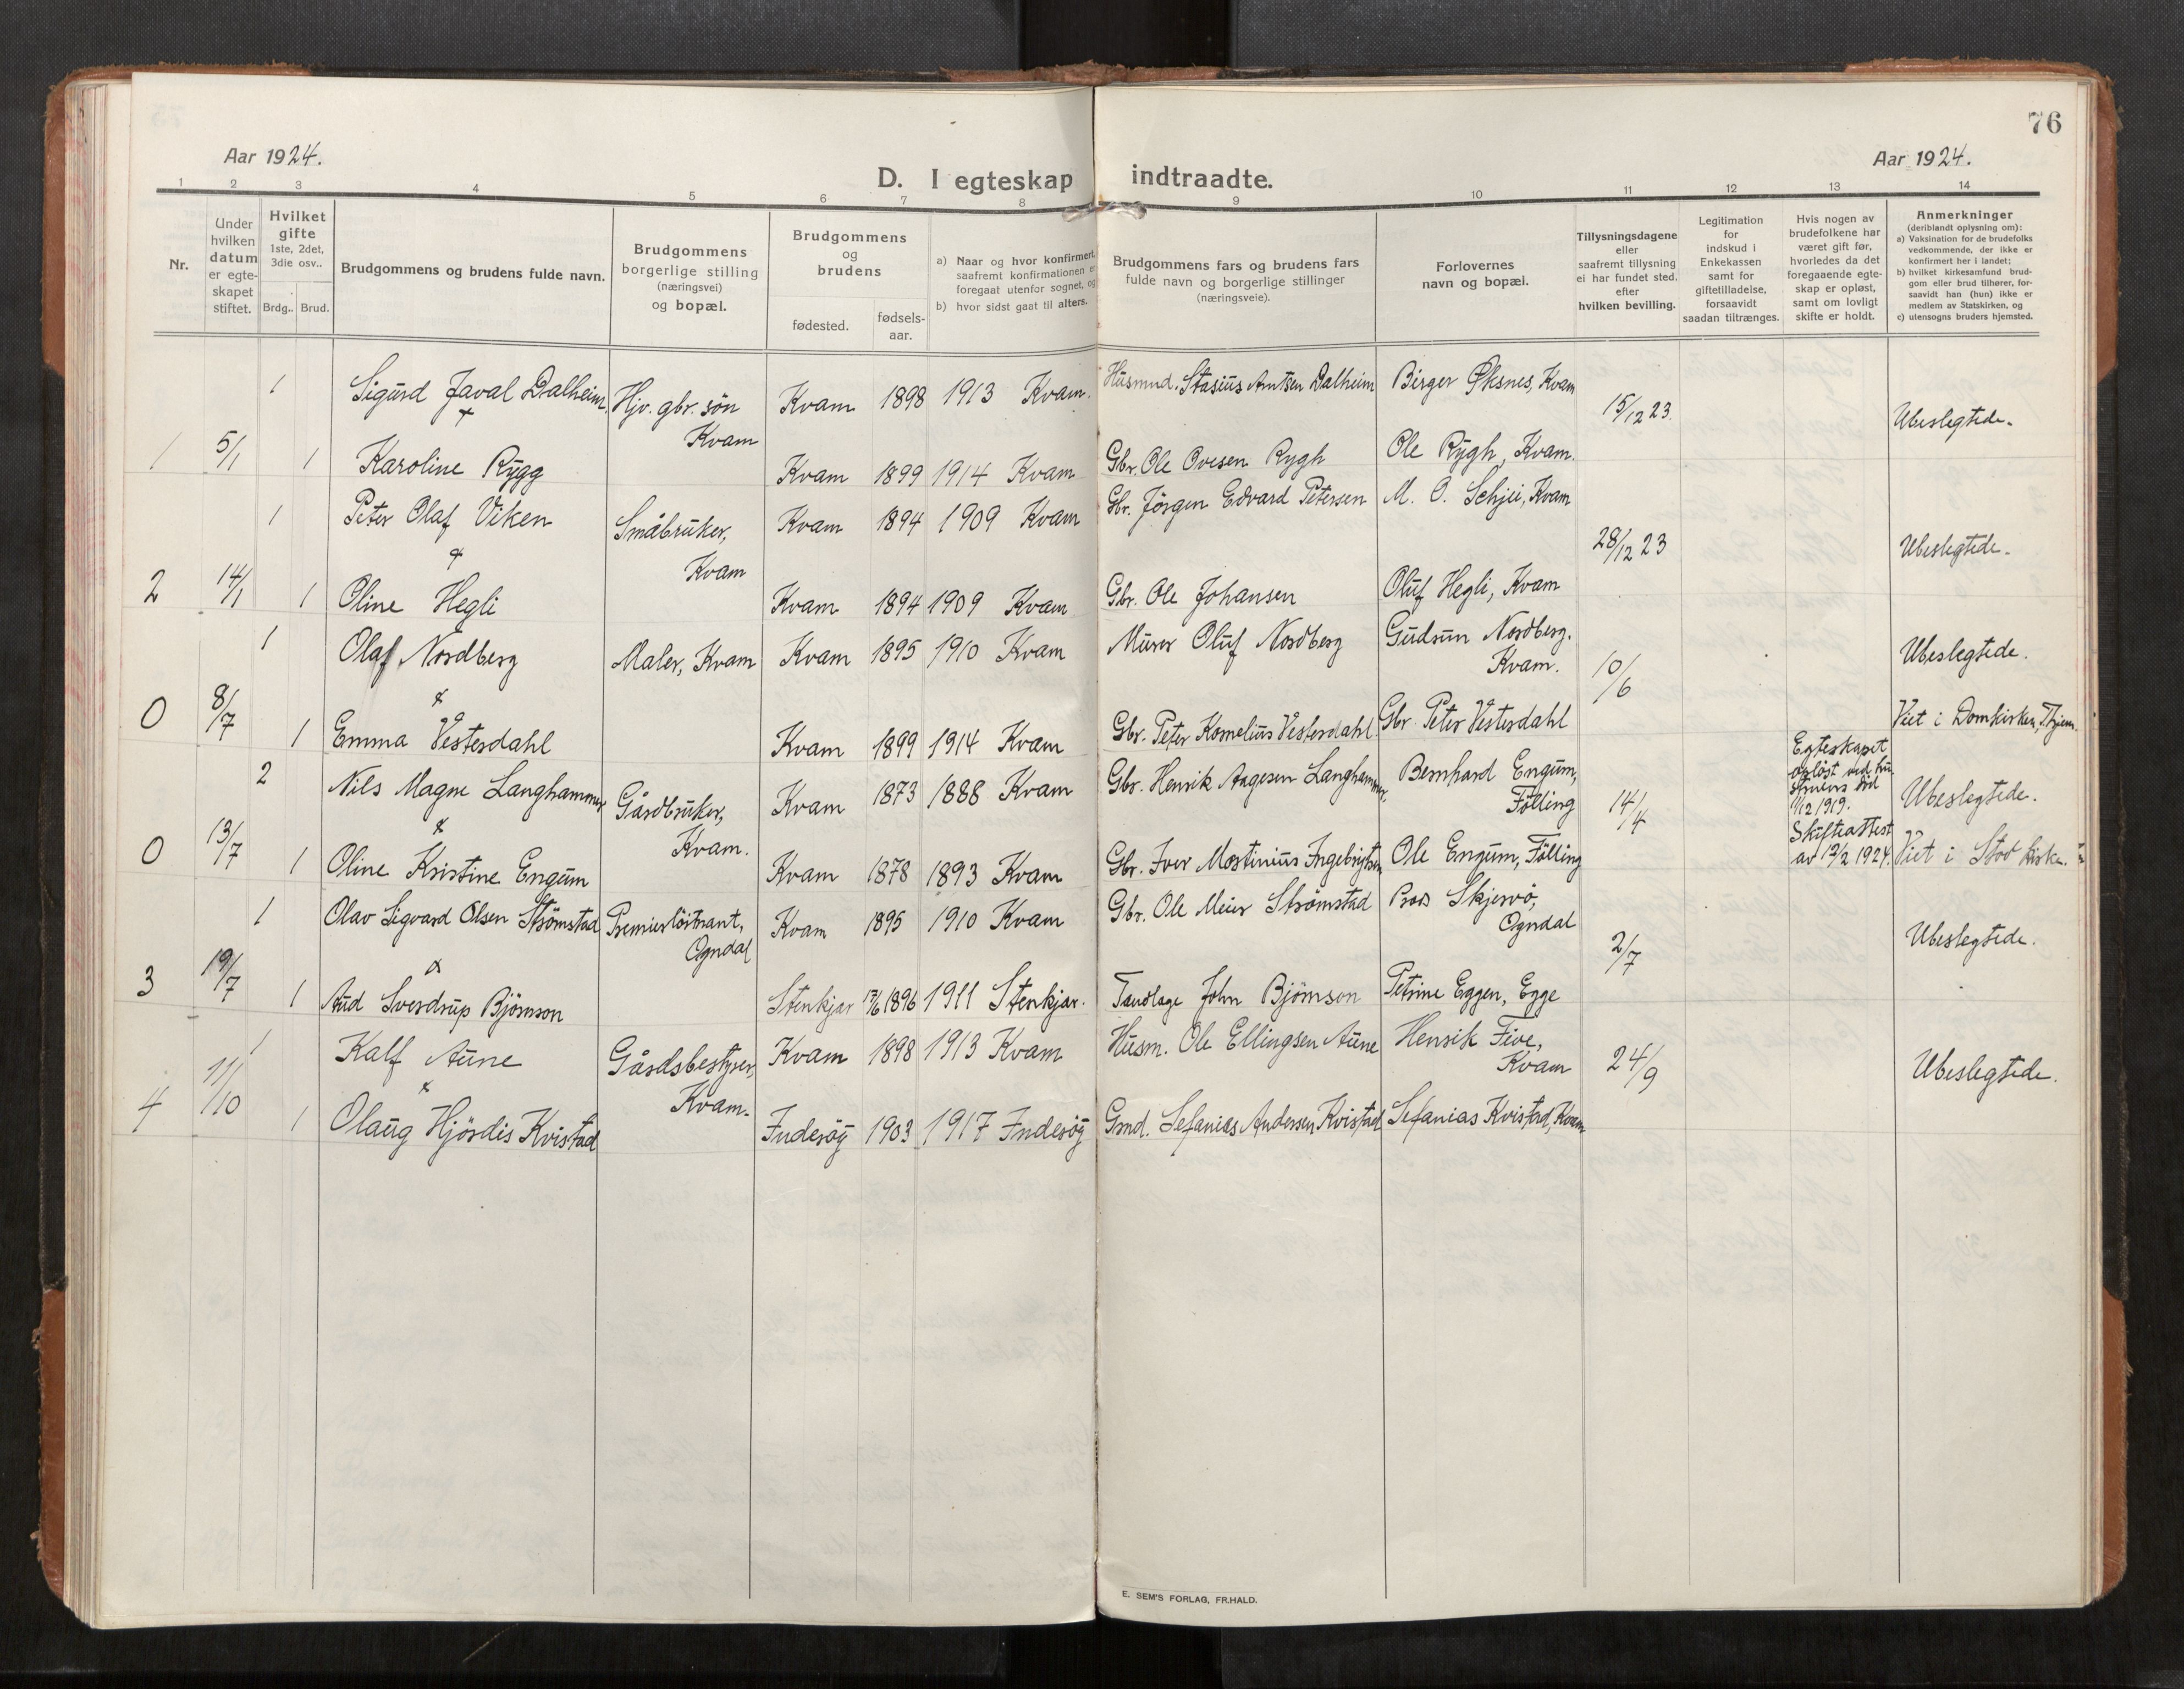 76
Aar 1924.
Aar 1924.
D. I egteskap indtraadte.
1 2 3 4 5 6 7 8 9 10 11 12 13 14
Nr.
Under hvilken datum er egte-skapet stiftet.
Hvilket gifte 1ste, 2det, 3die osv..
Brdg.. Brud.
Brudgommens og brudens fulde navn.
Brudgommens borgerlige stilling (næringsvei) og bopæl.
Brudgommens og brudens
fødested.
fødsels-aar.
a) Naar og hvor konfirmert saafremt konfirmationen er foregaat utenfor sognet, og
b) hvor sidst gaat til alters.
Brudgommens fars og brudens fars fulde navn og borgerlige stillinger (næringsveie).
Forlovernes navn og bopæl.
Tillysningsdagene eller saafremt tillysning ei har fundet sted. efter hvilken bevilling.
Legitimation for indskud i Enkekassen samt for giftetilladelse, forsaavidt saadan tiltrænges.
Hvis nogen av brudefolkene har været gift før, hvorledes da det foregaaende egte-skap er opløst, samt om lovligt skifte er holdt.
Anmerkninger (deriblandt oplysning om):
a) Vaksination for de brudefolks vedkommende, der ikke er konfirmert her i landet;
b) hvilket kirkesamfund brud-gom eller brud tilhører, for-saavidt han (hun) ikke er medlem av Statskirken, og
c) utensogns bruders hjemsted.
1 Sigurd Javal Dalheim, Hjv. gbr. søn Kvam 1898 1913 Kvam. Husmnd. Stasius Arntsen Dalheim Birger Øksnes, Kvam
& Kvam 15/12 23. Ubeslegtede.
1 5/1 1 Karoline Rygg Kvam 1899 1914 Kvam Gbr. Ole Ovesen Rygh Ole Rygh, Kvam.
1 Peter Olaf Viken Småbruker, Kvam 1894 1909 Kvam Gbr. Jörgen Edvard Petersen M. O. Schjei, Kvam
& Kvam 28/12 23 Ubeslegtede.
2 14/1 1 Oline Hegli Kvam 1894 1909 Kvam Gbr. Ole Johansen Oluf Hegli, Kvam
1 Olaf Nordberg Maler, Kvam Kvam 1895 1910 Kvam Murer Oluf Nordberg Gudrun Nordberg. Ubeslegtede.
& Kvam. 10/6
0 8/7 1 Emma Vesterdahl Kvam 1899 1914 Kvam Gbr. Peter Kornelius Vesterdahl. Gbr. Peter Vesterdahl Viet i Domkirken, Thjem.
2 Nils Magne Langhammer Gårdbruker, Kvam 1873 1888 Kvam Gbr. Henrik Aagesen Langhammer, Bernhard Engum, Egteskapet opløst ved hustruens död 1/12 1919. Ubeslegtede.
& Kvam. Fölling 14/4
0 13/7 1 Oline Kristine Engum Kvam 1878 1893 Kvam Gbr. Iver Mostinius Ingebrigtsen Ole Engum, Fölling Skifteattest av 12/2 1924. Viet i Stod kirke.
1 Olav Sigvard Olsen Strömstad Premierlöitnant, Kvam 1895 1910 Kvam Gbr. Ole Meier Strømstad Skjervö,
& Ogndal Ogndal 2/7 Ubeslegtede.
3 19/7 1 Aud Sverdrup Björnson Stenkjær 1896 1911 Stenkjær. Tandlæge John Björnson Petrine Eggen, Egge
1 Kalf Aune Gårdsbestyrer, Kvam 1898 1913 Kvam Husm. Ole Ellingsen Aune Henrik Five,
& Kvam. Kvam 24/9 Ubeslegtede.
4 11/10 1 Olaug Hjördis Kvistad Inderöy 1903 1917 Inderöy Grnd. Sefanias Andersen Kvistad Sefanias Kvistad, Kvam
E. SEM'S FORLAG, FR.HALD.